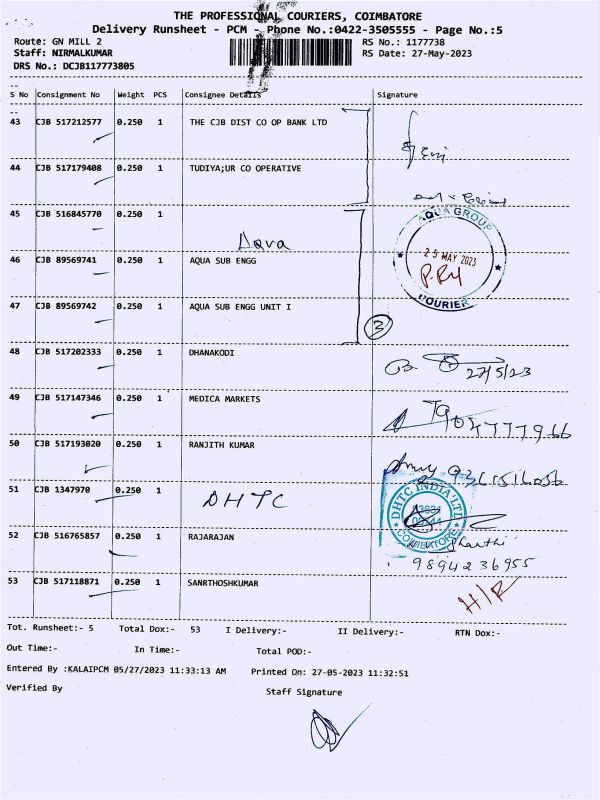 THE PROFESSIONAL COURIERS, COIMBATORE
Delivery Runsheet - PCM - Phone No.:0422-3505555 - Page No.:5
Route: GN MILL 2 RS No.: 1177738
Staff: NIRMALKUMAR RS Date: 27-May-2023
DRS No.: DCJB117773805
S No Consignment No Weight PCS Consignee Details Signature
43 CJB 517212577 0.250 1 THE CJB DIST CO OP BANK LTD
44 CJB 517179408 0.250 1 TUDIYA;UR CO OPERATIVE
45 CJB 516845770 0.250 1
AQUA GROUP
25 MAY 2023
COURIER
46 CJB 89569741 0.250 1 AQUA SUB ENGG
47 CJB 89569742 0.250 1 AQUA SUB ENGG UNIT I
3
48 CJB 517202333 0.250 1 DHANAKODI
27/5/23
49 CJB 517147346 0.250 1 MEDICA MARKETS
50 CJB 517193020 0.250 1 RANJITH KUMAR
51 CJB 1347970 0.250 1 DHTC
DHTC INDIA LTD
COIMBATORE
52 CJB 516765857 0.250 1 RAJARAJAN
9894236955
53 CJB 517118871 0.250 1 SANRTHOSHKUMAR
H/R
Tot. Runsheet:- 5 Total Dox:- 53 I Delivery:- II Delivery:- RTN Dox:-
Out Time:- In Time:- Total POD:-
Entered By :KALAIPCM 05/27/2023 11:33:13 AM Printed On: 27-05-2023 11:32:51
Verified By Staff Signature